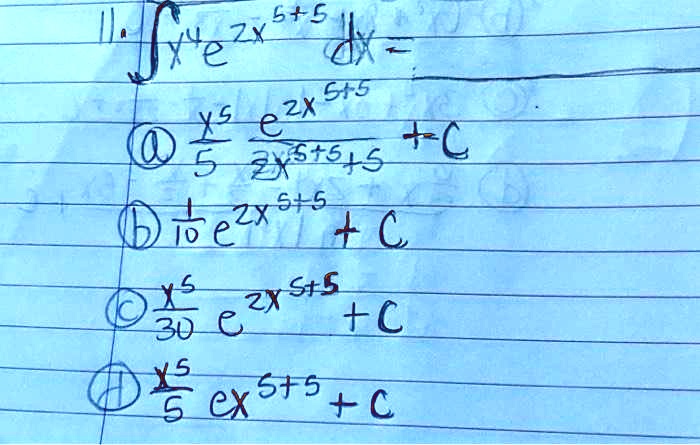 11. ∫x⁴e^2x^5+5 dx = ______
(a) x⁵/5 e^2x^5+5/2x^5+5+5 + C
(b) 1/10 e^2x^5+5 + C
(c) x⁵/30 e^2x^5+5 + C
(d) x⁵/5 ex^5+5 + C